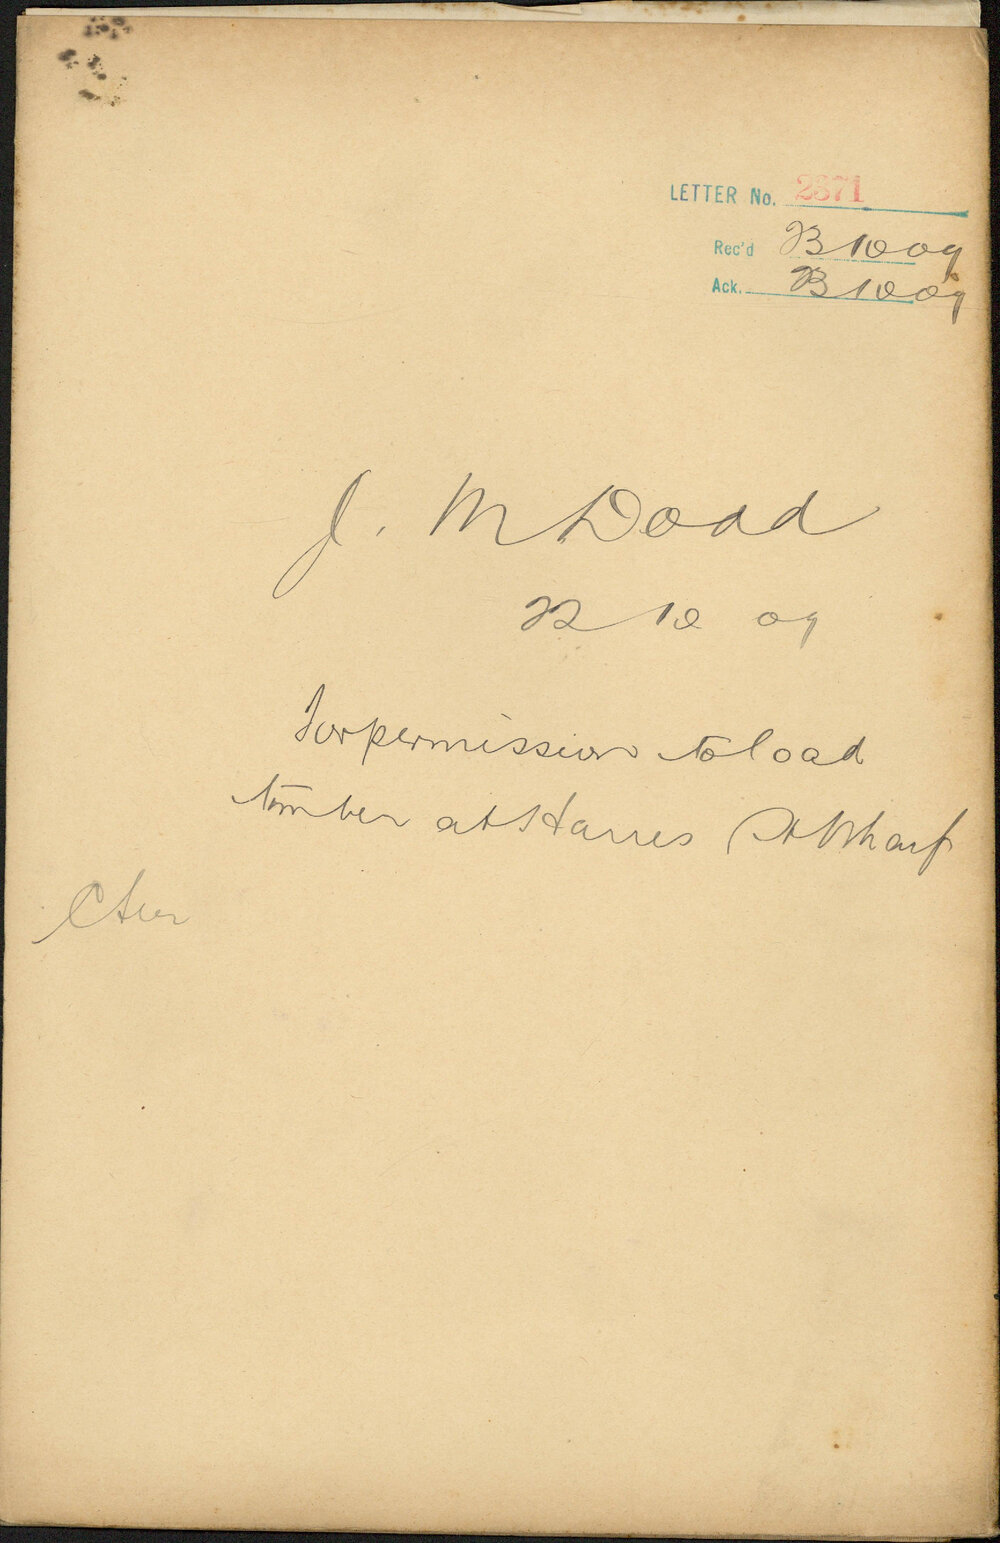 LETTER No. 2671
Rec'd 23 10 09
Ack. 23 10 09
J. M Dodd
22 10 09
For permission to load
timber at Harris St Wharf